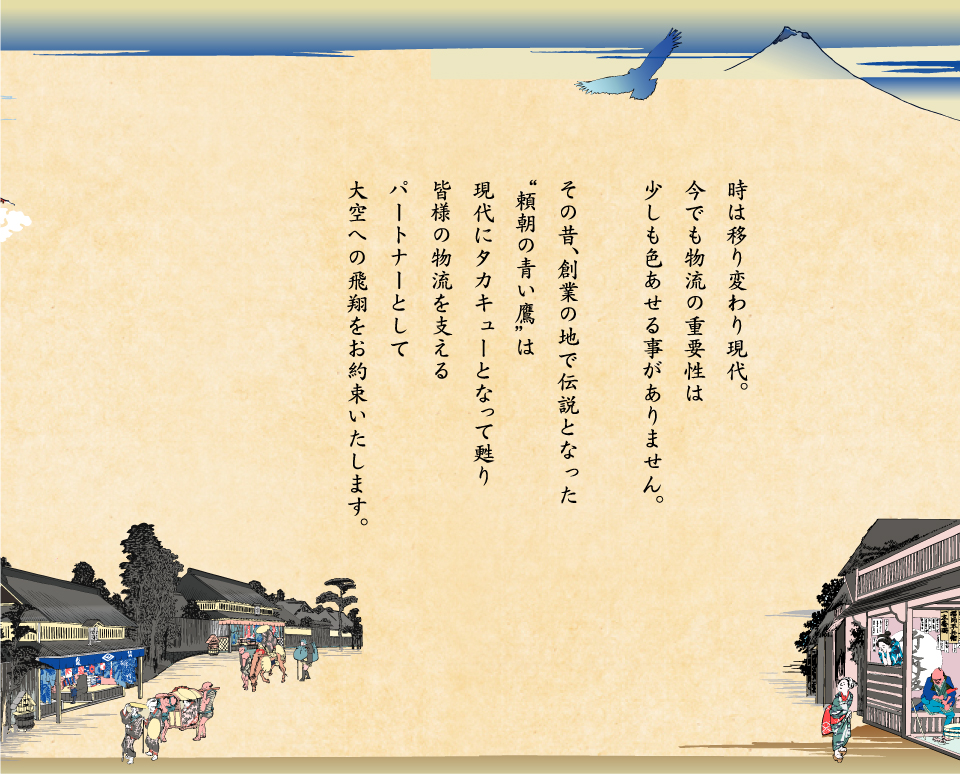 時は移り変わり現代。
今でも物流の重要性は
少しも色あせる事がありません。
その昔、創業の地で伝説となった
“頼朝の青い鷹”は
現代にタカキューとなって甦り
皆様の物流を支える
パートナーとして
大空への飛翔をお約束いたします。